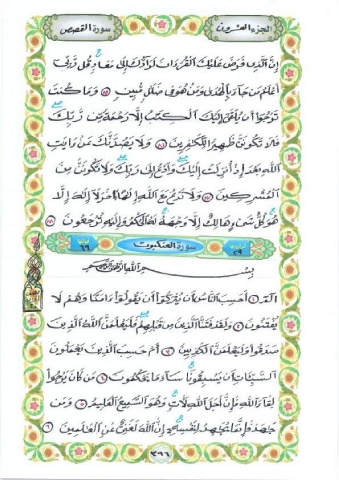 الجزء العشرون
سورة القصص
إن الذى فرض عليك القرءان لرادك إلى معاد قل ربى
أعلم من جاء بالهدى ومن هو فى ضلل مبين ٨٥ وما كنت
ترجوا أن يلقى إليك الكتب إلا رحمة من ربك
فلا تكونن ظهيرا للكفرين ٨٦ ولا يصدنك عن ءايت
الله بعد إذ أنزلت إليك وادع إلى ربك ولا تكونن من
المشركين ٨٧ ولا تدع مع الله إلها ءاخر لا إله إلا
هو كل شىء هالك إلا وجهه له الحكم وإليه ترجعون ٨٨
سورة العنكبوت
٢٩
٦٩
بسم الله الرحمن الرحيم
الم ١ أحسب الناس أن يتركوا أن يقولوا ءامنا وهم لا
يفتنون ٢ ولقد فتنا الذين من قبلهم فليعلمن الله الذين
صدقوا وليعلمن الكذبين ٣ أم حسب الذين يعملون
السيئات أن يسبقونا ساء ما يحكمون ٤ من كان يرجوا
لقاء الله فإن أجل الله لأت وهو السميع العليم ٥ ومن
جهد فإنما يجهد لنفسه إن الله لغنى عن العلمين ٦
٣٩٦